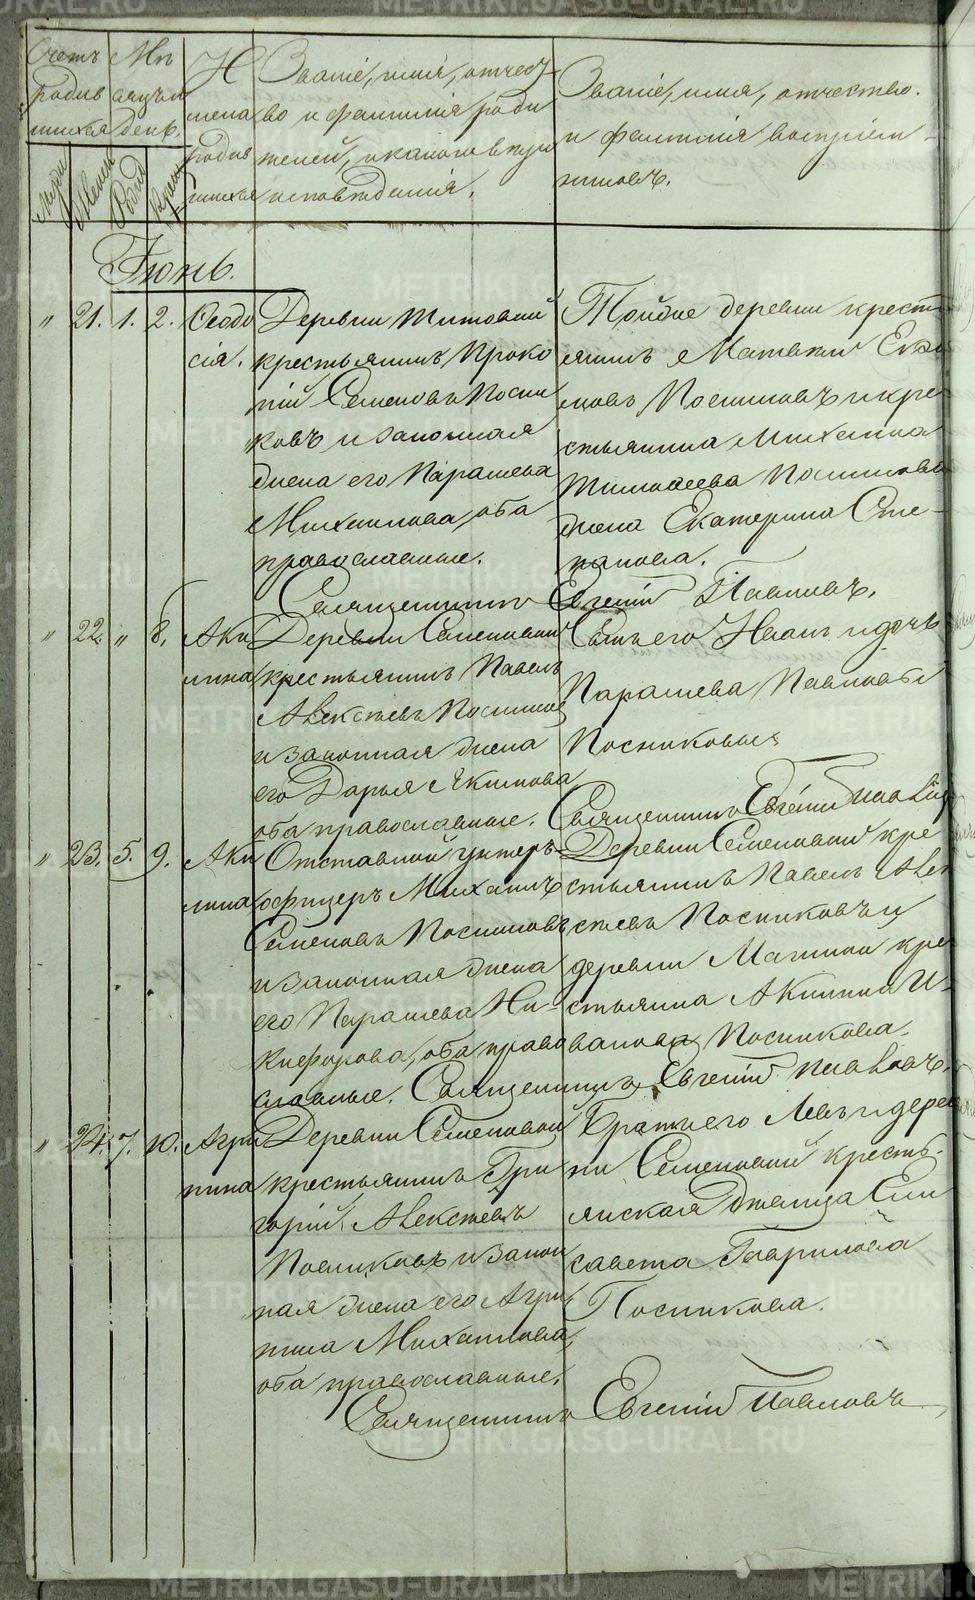 Счетъ родив шихся
Мѣ сяцъ и день.
И мена родив шихся
Званіе, имя, отчест
во и фамилія роди
телей, и какого вѣро
исповѣданія.
Званіе, имя, отчество.
и фамилія воспріем-
никовъ.
Муж. Женск. Рожд. Крещ.
Іюнь.
" 21. 1. 2. Ѳеодо
сія.
Деревни Титовой
крестьянинъ Проко
пій Семеновъ Посни
ковъ и законная
жена его Параскева
Михаилова, оба
православные.
Тойже деревни кресть
янинъ Матвѣй
Посниковъ и кре
стьянина Михаила
Тимоѳеева Посникова
жена Екатерина Сте-
панова.
Священникъ Евгеній Павловъ.
" 22. " 8. Аки
лина
Деревни Семеновой
крестьянинъ Павелъ
Алексѣевъ Посников
и законная жена
его Дарья Якимова
оба православные.
Сынъ его Иванъ и дочь
Параскева Павловы
Посниковы
Священникъ Евгеній Павловъ
" 23. 5. 9. Аки
лина
Отставной унтеръ-
офицеръ Михаилъ
Семеновъ Посниковъ
и законная жена
его Параскева Ни-
кифорова, оба право
славные.
Деревни Семеновой кре
стьянинъ Павелъ Алек
сѣевъ Посниковъ и
деревни Мапиной кре
стьянина Акилина И-
ванова Посникова.
Священникъ Евгеній Павловъ.
" 24. 7. 10. Агри
пина
Деревни Семеновой
крестьянинъ Гри
горій Алексѣевъ
Посниковъ и закон
ная жена его Агри
пина Михаилова,
оба православные.
Братъ его Левъ и дерев
ни Семеновой кресть-
янская дѣвица Ели
савета Гаврилова
Посникова.
Священникъ Евгеній Павловъ
METRIKI.GASO-URAL.RU